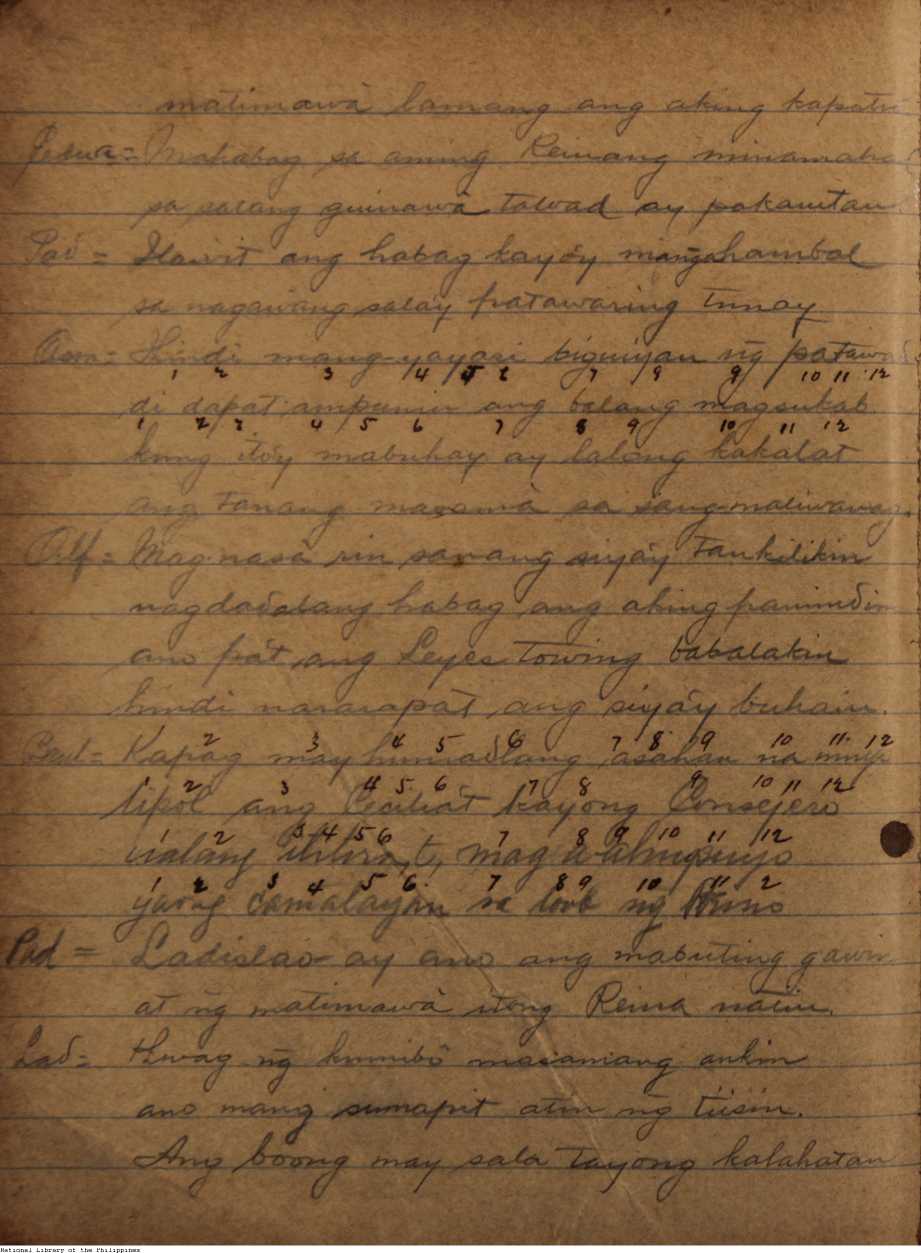 matimawà lamang ang aking kapatid
= Mahabag sa aming Reinang minamahal
sa salang guinawà tawad ay pakamtan.
Pad = Hawit ang habag kayóy mangahambal
sa nagawang salay patawaring tunay
Asm = Hindi mang-yayari biguiyan ng patawad
1 2 3 4 5 6 7 8 9 10 11 12
di dapat ampunin ang balang magsukab.
1 2 3 4 5 6 7 8 9 10 11 12
kung itóy mabuhay ay lalong kakalat
ang tanang masamà sa sang-maliwanag.
Alf = Mag-nasà rin sanang siyáy tankilikin
nagdadalang habag ang aking panimdim
ano pát ang Leyes towing babalakin
hindi nararapát ang siyáy buhain.
2 3 4 5 6 7 8 9 10 11 12
= Kapag may humadlang asahan na ninyo
2 3 4 5 6 7 8 9 10 11 12
lipol ang Ceciliát kayong Consejero
1 2 3 4 5 6 7 8 9 10 11 12
walang ititira,t,
1 2 3 4 5 6 7 8 9 10 11 2
yaong camalayan sa loob ng Reino
Pad = Ladislao ay ano ang mabuting gawin
at ng matimawà itong Reina natin.
Lad = Huwag ng kumibô masamang ankin
ano mang sumapit atin ng tiisin.
Ang boong may sala tayong kalahatan
National Library of the Philippines